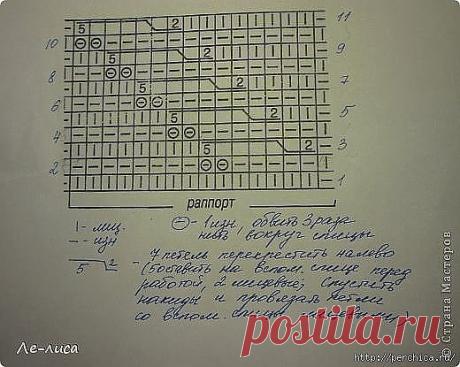 5 2 11
10
5 2 9
8
5 2 7
6
5 2 5
4
5 2 3
2
1
раппорт
I - лиц. ⊖ - 1 изн, обвить 3 раза
– - изн нить вокруг спицы
5 2 - 7 петель перекрестить налево
(5 оставить на вспом. спице перед
работой, 2 лицевые; спустить
накиды и провязать петли
со вспом. спицы лицевыми)
Ле-лиса
postila.ru
© Страна Мастеров
http://perchica.ru/